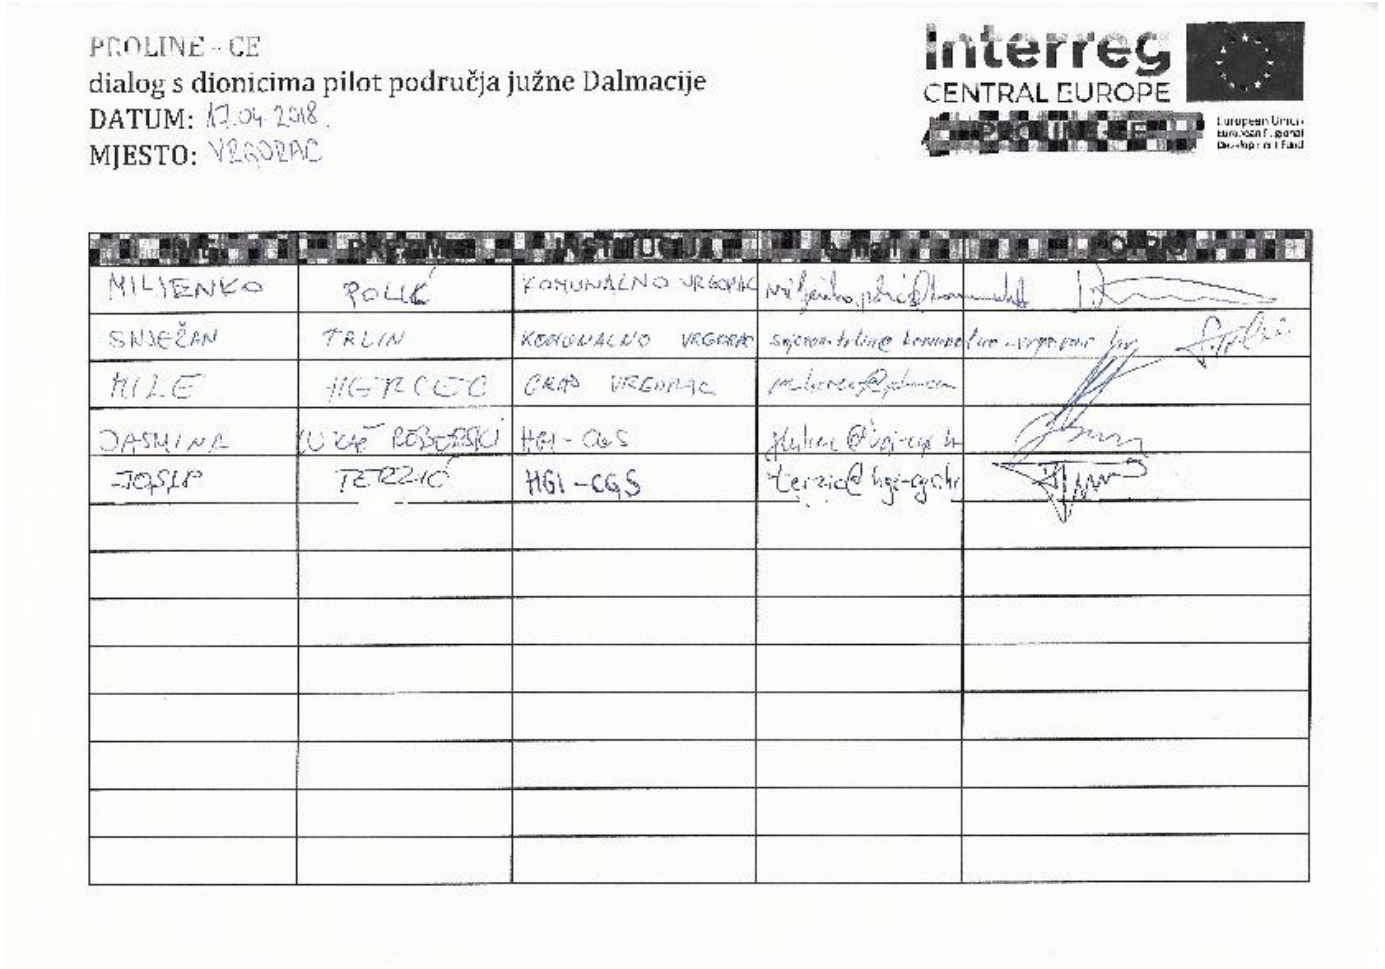 PROLINE - CE
dialog s dionicima pilot područja južne Dalmacije
DATUM: 17.04.2018.
MJESTO: VRGORAC
Interreg
CENTRAL EUROPE
PROLINE-CE
European Union
European Regional
Development Fund
IME PREZIME INSTITUCIJA e-mail POTPIS
MILJENKO POLIĆ KOMUNALNO VRGORAC
SNJEŽAN TRLIN KOMUNALNO VRGORAC
MILE HERCEG GRAD VRGORAC
JASMINA HGI - CGS
JOSIP TERZIĆ HGI - CGS terzic@hgi-cgs.hr